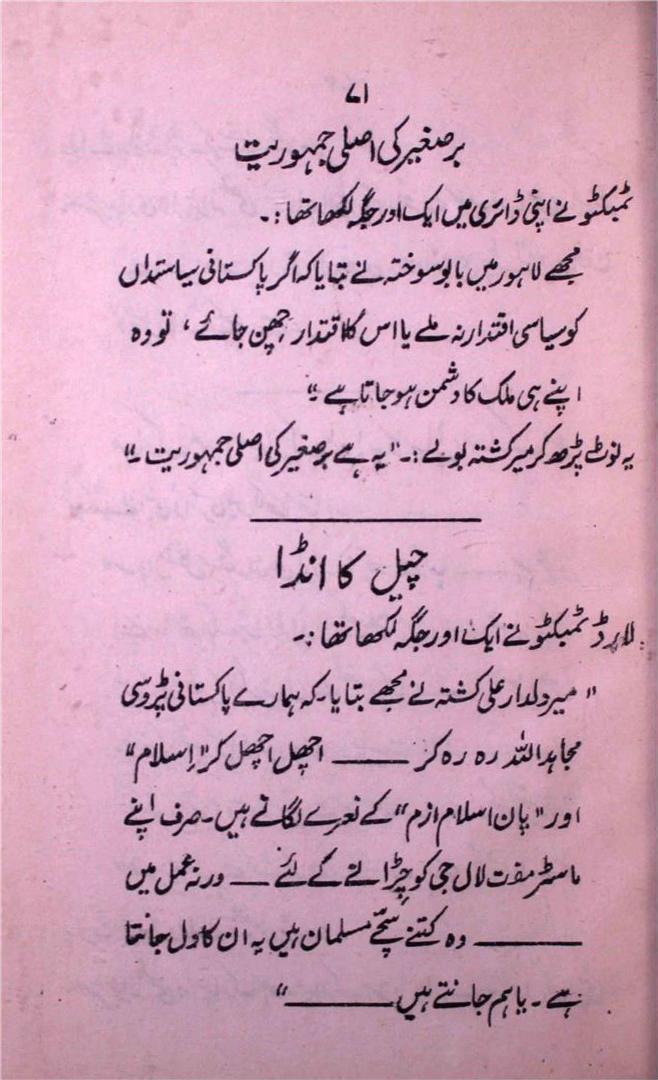 ۷۱
برصغیر کی اصلی جمہوریت
ٹمبکٹو نے اپنی ڈائری میں ایک اور جگہ لکھا تھا :۔
مجھے لاہور میں بابو سوختہ نے بتایا کہ اگر پاکستانی سیاستداں
کو سیاسی اقتدار نہ ملے یا اس کا اقتدار چھن جائے ، تو وہ
اپنے ہی ملک کا دشمن ہو جاتا ہے ۔"
یہ نوٹ پڑھ کر میر کشتہ بولے :۔ "یہ ہے برصغیر کی اصلی جمہوریت ۔"
چیل کا انڈا
لارڈ ٹمبکٹو نے ایک اور جگہ لکھا تھا :۔
" میر دلدار علی کشتہ نے مجھے بتایا۔ کہ ہمارے پاکستانی پڑوسی
مجاہد اللہ رہ رہ کر ــــــ اچھل اچھل کر "اسلام"
اور "پان اسلام ازم" کے نعرے لگاتے ہیں۔ صرف اپنے
ماسٹر مفت لال جی کو چڑانے کے لئے ـــ ورنہ عمل میں
ــــــــ وہ کتنے سچے مسلمان ہیں یہ ان کا دل جانتا
ہے ۔ یا ہم جانتے ہیں ــــــــ "